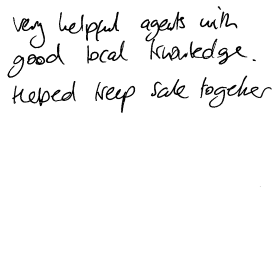 very helpful agents with
good local knowledge.
Helped keep sale together